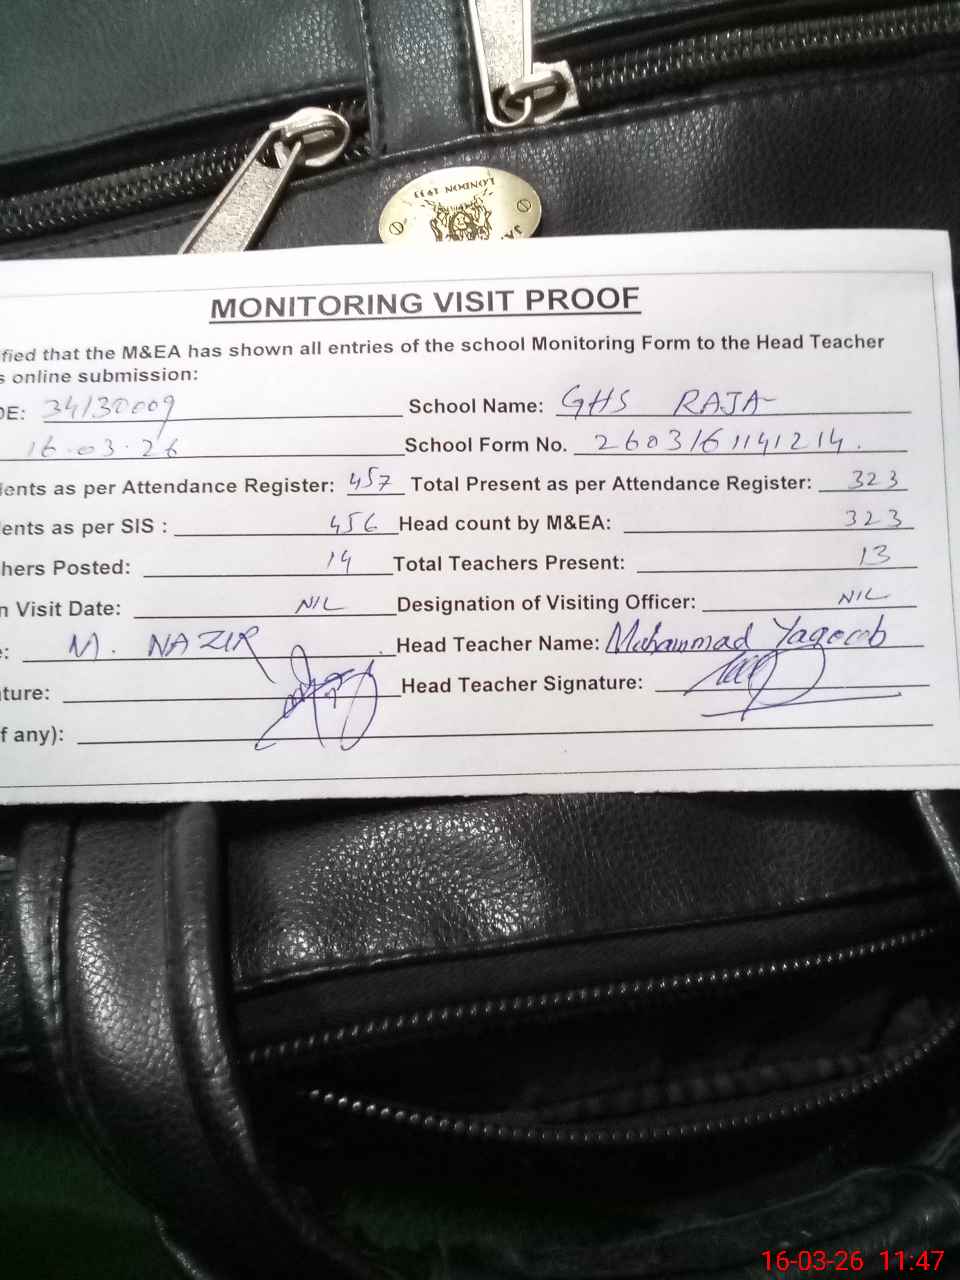 LONDON 1933
MONITORING VISIT PROOF
fied that the M&EA has shown all entries of the school Monitoring Form to the Head Teacher
s online submission:
DE: 34130009 School Name: GHS RAJA
16-03-26 School Form No. 260316114 1214.
ents as per Attendance Register: 457 Total Present as per Attendance Register: 323
ents as per SIS : 456 Head count by M&EA: 323
hers Posted: 14 Total Teachers Present: 13
n Visit Date: NIL Designation of Visiting Officer: NIL
e: M. NAZIR Head Teacher Name: Muhammad Yaqoob
ture: Head Teacher Signature:
f any):
16-03-26 11:47